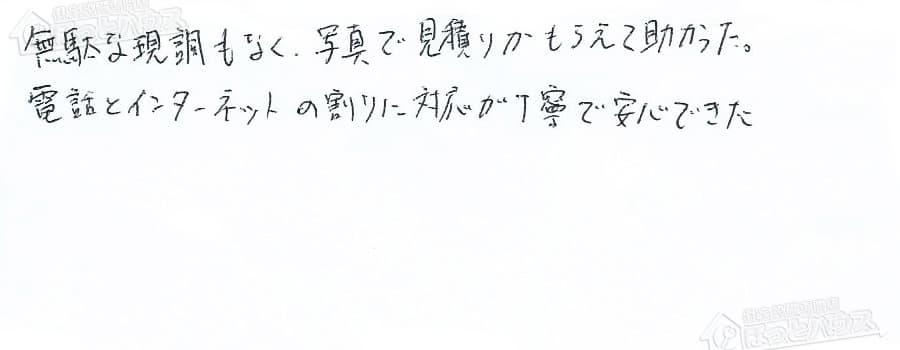 無駄な現調もなく、写真で見積りがもらえて助かった。
電話とインターネットの割りに対応が丁寧で安心できた
ほっとハウス